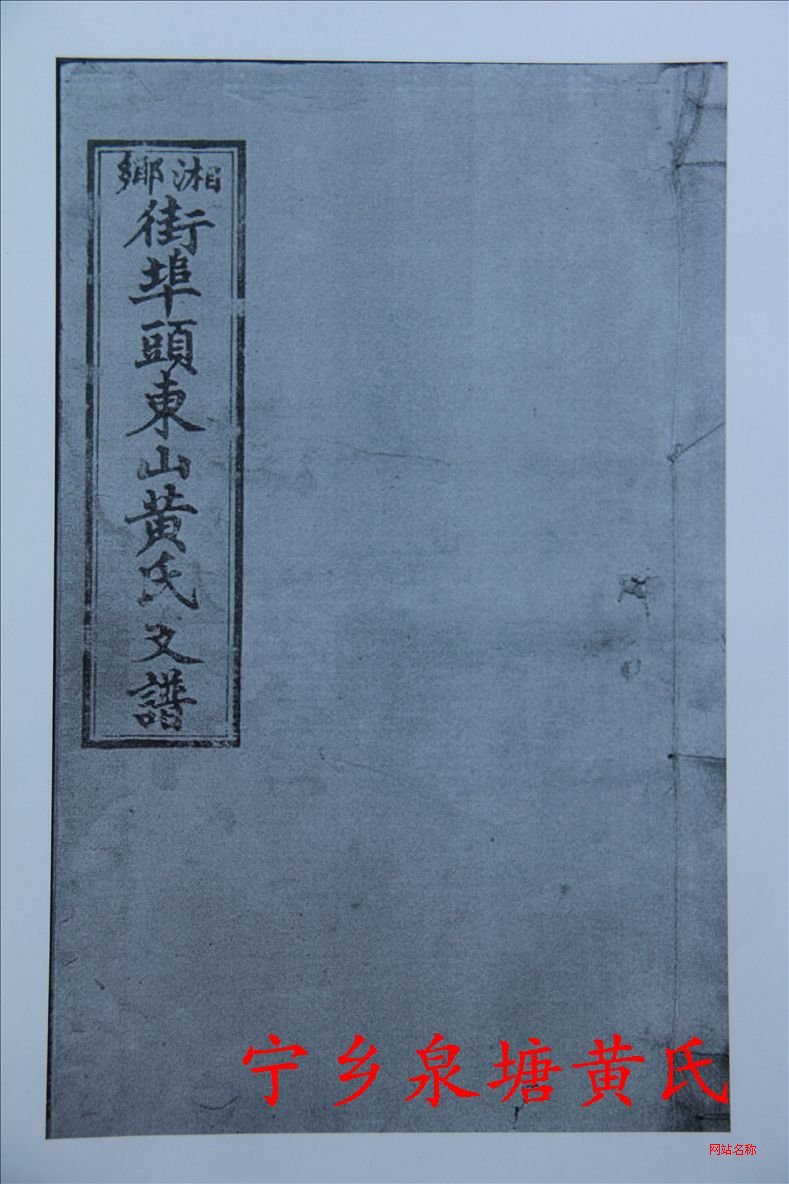 湘鄉
街埠頭東山黄氏支譜
宁乡泉塘黄氏
网站名称